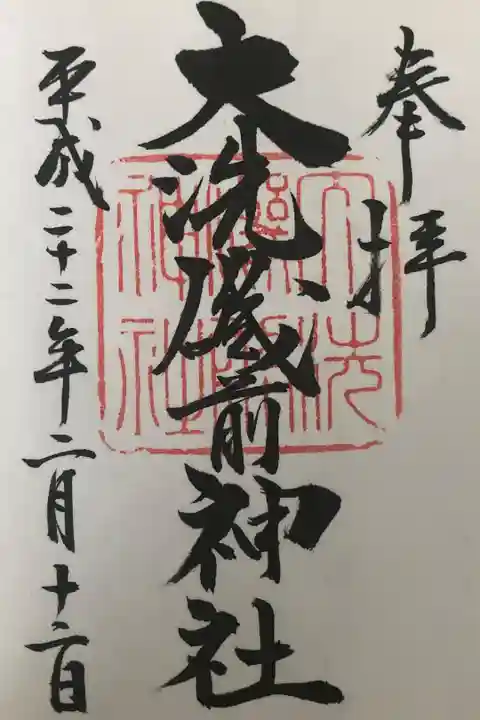 奉拝
大洗磯前神社
平成二十二年二月十二日
大洗磯前神社